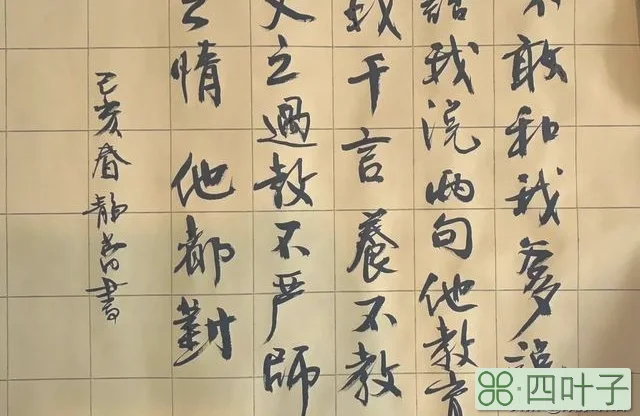 不敢和我爹说
話我说两句他教育
我千言養不教
父之過教不严師
之情他都對
己亥春静書
四叶子